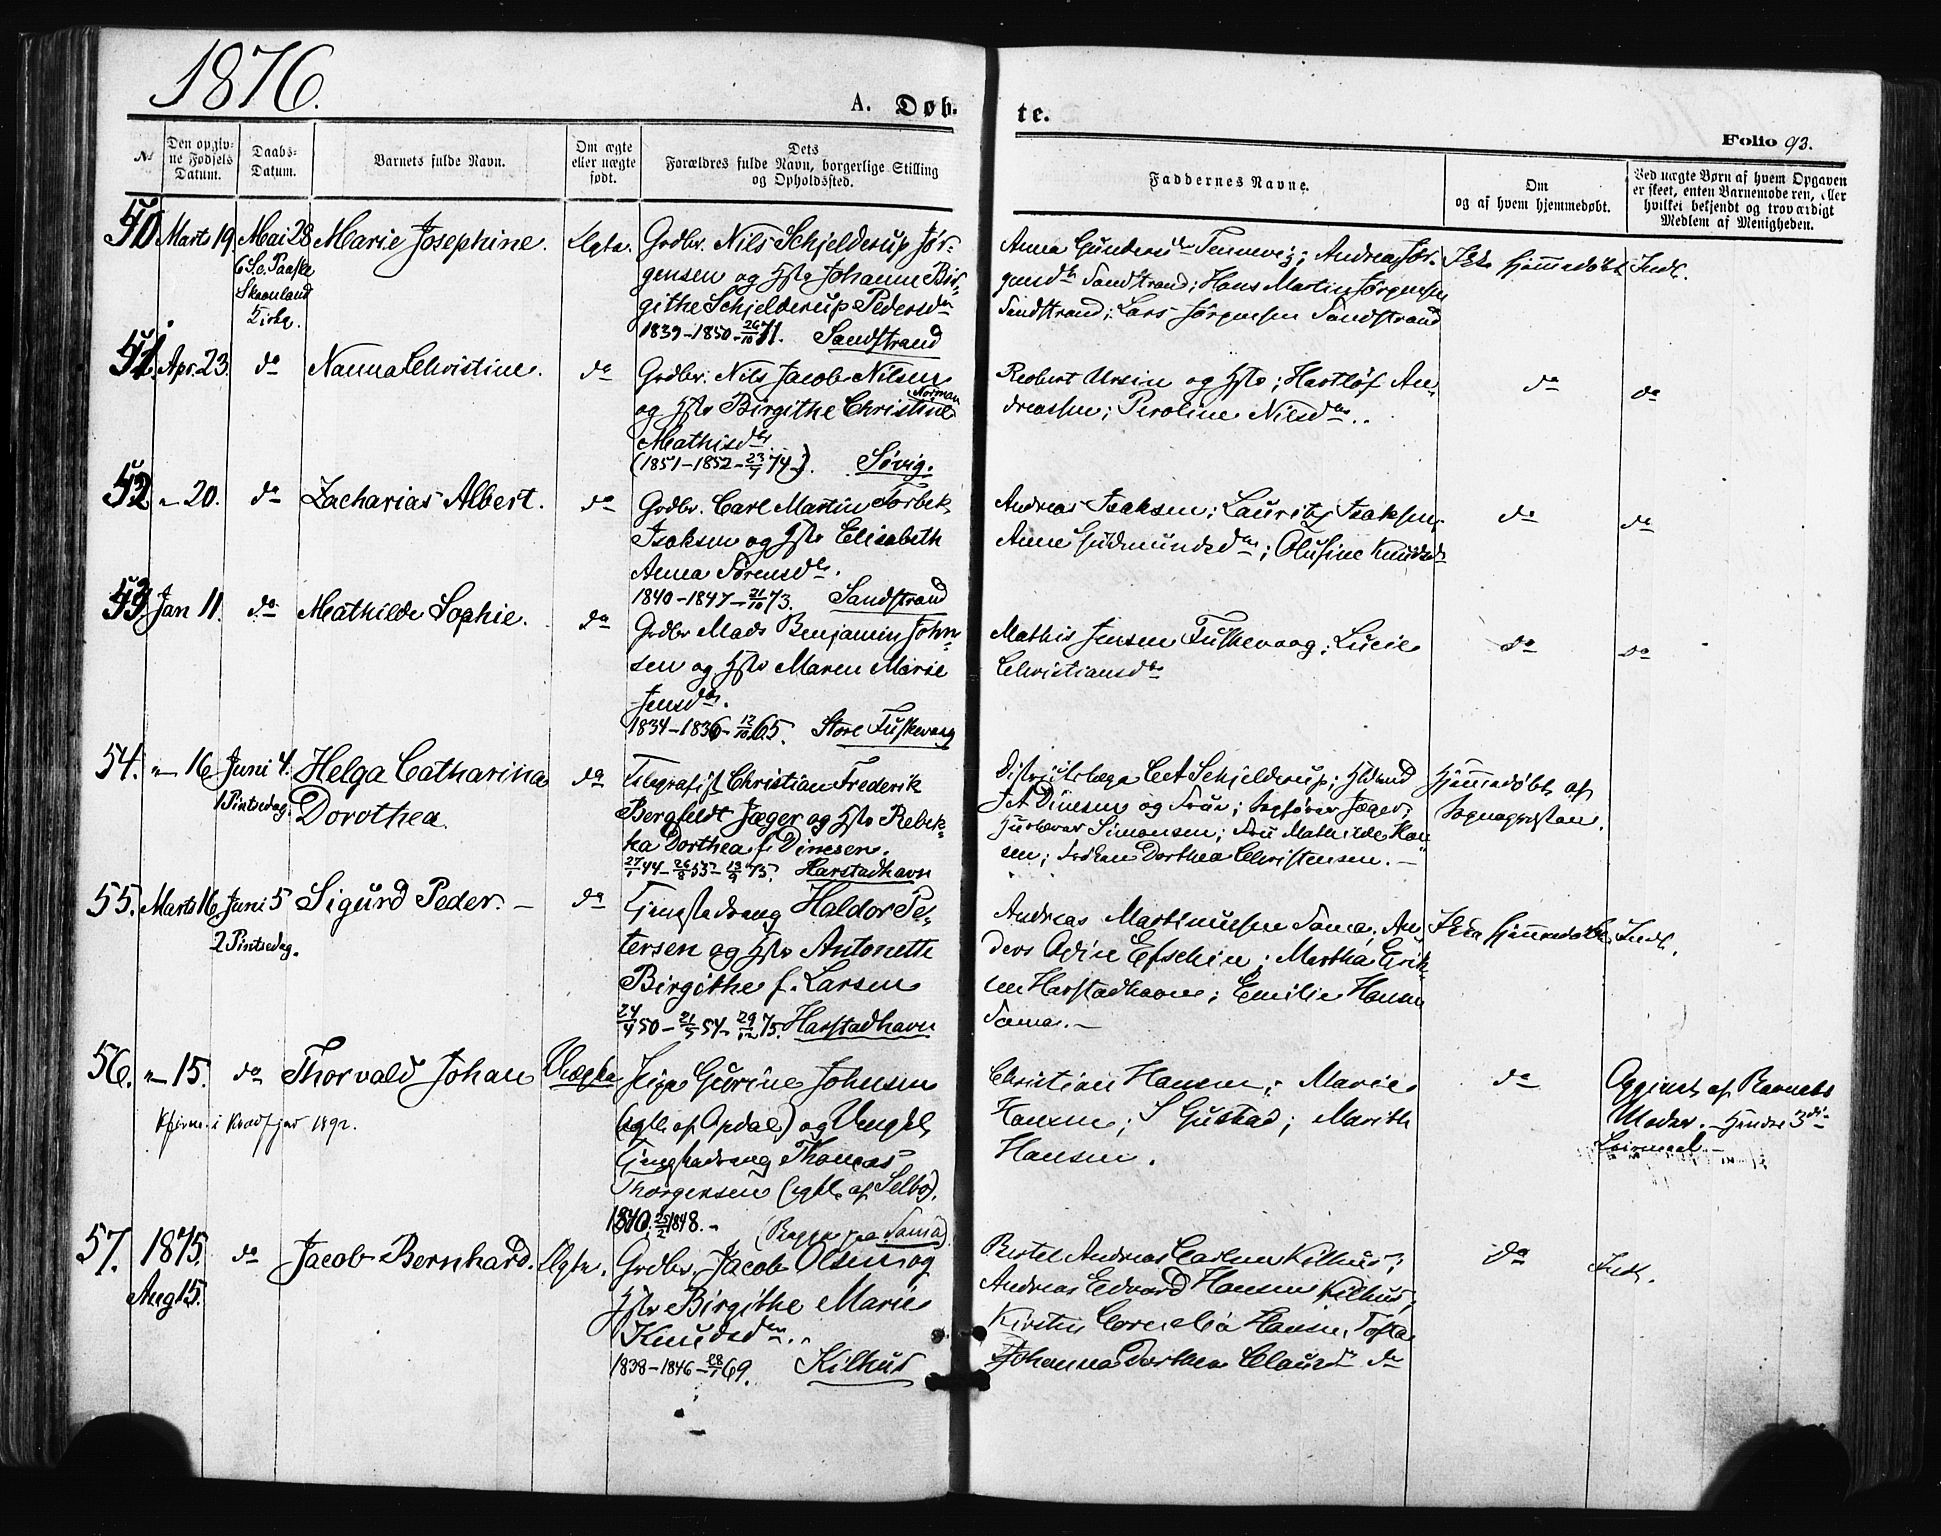 1876.
A. Døb-
te.
Folio 93.
№
Den opgiv-
ne Fødsels
Datum.
Daabs-
Datum.
Barnets fulde Navn.
Om ægte
eller uægte
født.
Dets
Forældres fulde Navn, borgerlige Stilling
og Opholdssted.
Faddernes Navne.
Om
og af hvem hjemmedøbt.
Ved uægte Børn af hvem Opgaven
er skeet, enten Barnemoderen, eller
hvilket bekjendt og troværdigt
Medlem af Menigheden.
50 Marts 19. Mai 28 Marie Josephine. Ægte.
6 S. e. Paaske
Skaanland
Kirke.
Grdbr. Nils Schjelderup Jør-
gensen og Hstr Johanne Bir-
githe Schjelderup Pedersdr
1839-1850-26/10 71. Sandstrand
Anna Gundersdr Tennevig; Andrea Jør-
gensdr Sandstrand; Hans Martin Jørgensen
Sandstrand; Lars Jørgensen Sandstrand
Ikke hjemmedøbt Indl.
51. Apr. 23. do Nanna Christine. do
Grdbr. Nils Jacob Nilsen
og Hstr Birgithe Christine Norman
Mathisdr
(1851-1852-23/7 74). Søvig.
Robert Ursin og Hstr; Hartløf An-
dreassen; Peroline Nilsdr.
do do
52 " 20. do Zacharias Albert. do
Grdbr. Carl Martin Torbek
Isaksen og Hstr Elisabeth
Anna Sørensdr.
1840-1847-21/10 73. Sandstrand
Andreas Isaksen; Lauritz Isaksen;
Anne Guldmundsdr; Olufine Knudsdr
do do
53 Jan 11. do Mathilde Sophie. do
Grdbr Mads Benjamin John-
sen og Hstr Maren Marie
Jensdr.
1834-1836-12/10 65. Store Fuskevaag
Mathis Jensen Fuskevaag; Lucie
Christiansdr
do do
54. " 16 Juni 4. Helga Catharina do
1 Pintsedag. Dorothea.
Telegrafist Christian Frederik
Bergfeldt Jæger og Hstr Rebek-
ka Dorthea f. Dinesen.
27/1 44-26/8 53-13/2 75. Harstadhavn
Distriktslæge C A Schjelderup;
Dinesen og Frue; Sagfører Jæger;
Simonsen; Fru Mathilde Han-
sen; Frøken Dorthea Christensen.
Hjemmedøbt af
Sognepresten.
55. Marts 16 Juni 5 Sigurd Peder. do
2 Pintsedag.
Tjenestedreng Haldor Pe-
tersen og Hstr Antonette
Birgithe f. Larsen
24/4 50-21/5 54-29/12 75. Harstadhavn
Andreas Martinussen Sama; An-
ders Odin Efschin; Martha Erik-
sen Harstadhavn; Emilie Hansen
Sama.
Ikke hjemmedøbt Indl.
56. " 15. do Thorvald Johan Uægte
1892.
Pige Gurine Johnsen
(Indl. af Opdal) og Ungk.
Tjenestedreng Thomas
Thorgersen (Indl. af Selbo).
1840. 25/2 1848.
Christian Hansen; Marie
Hansen; S Gustad; Marith
Hansen.
do
Opgivet af Barnets
Moder. - Hendes 3die
Leiermaal
57. 1875 do Jacob Bernhard. Ægte.
Aug 15.
Grdbr. Jacob Olsen og
Hstr Birgithe Marie
Knudsdr.
1838-1846-28/7 69. Kilhus
Bertel Andreas Carlsen Kilhus;
Andreas Edvard Hansen Kilhus;
Kirsten Cornelia Hansen Tofta
Johanna Dorthea Clausdr do
do Indl.